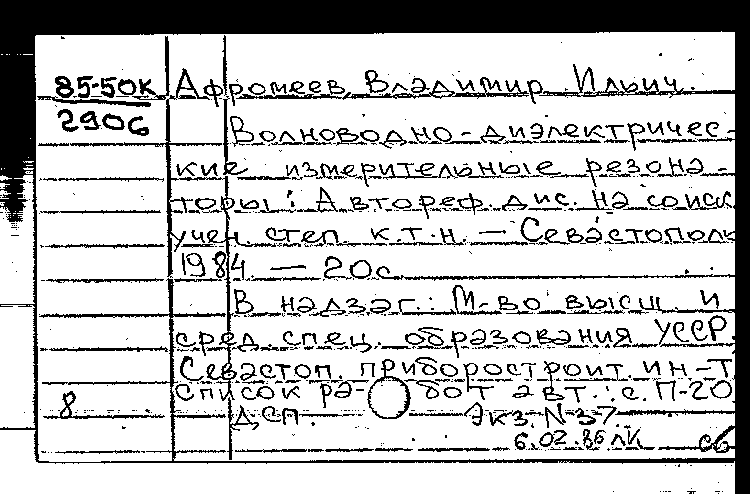 85-50К Афромеев, Владимир Ильич.
2906 Волноводно-диэлектричес-
кие измерительные резона-
торы: Автореф. дис. на соиск
учен. степ. к.т.н. — Севастополь
1984. — 20с.
В надзаг.: М-во высш. и
сред. спец. образования УССР,
Севастоп. приборостроит. ин-т
Список работ авт.: с. П-20
8 ДСП. Экз. N 37.
6.02.86 ЛК сб